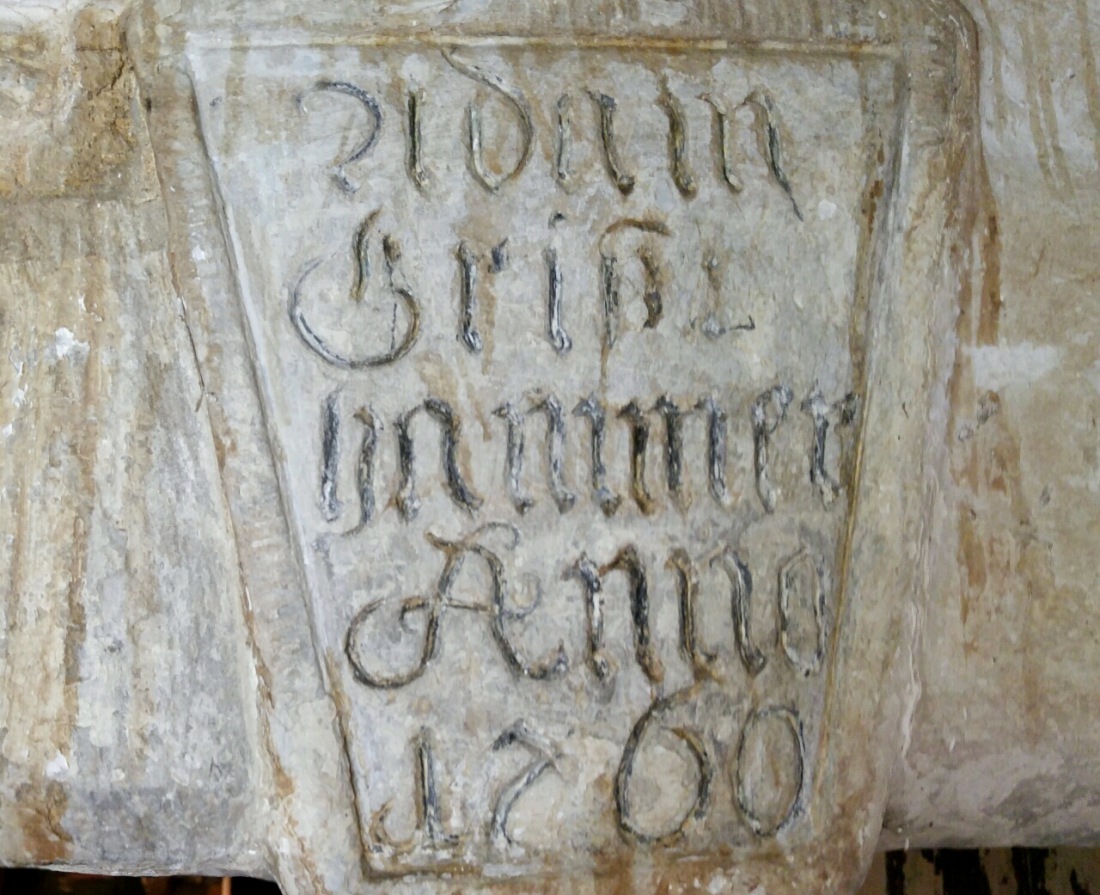 Adam
Griß
hammer
Anno
1760